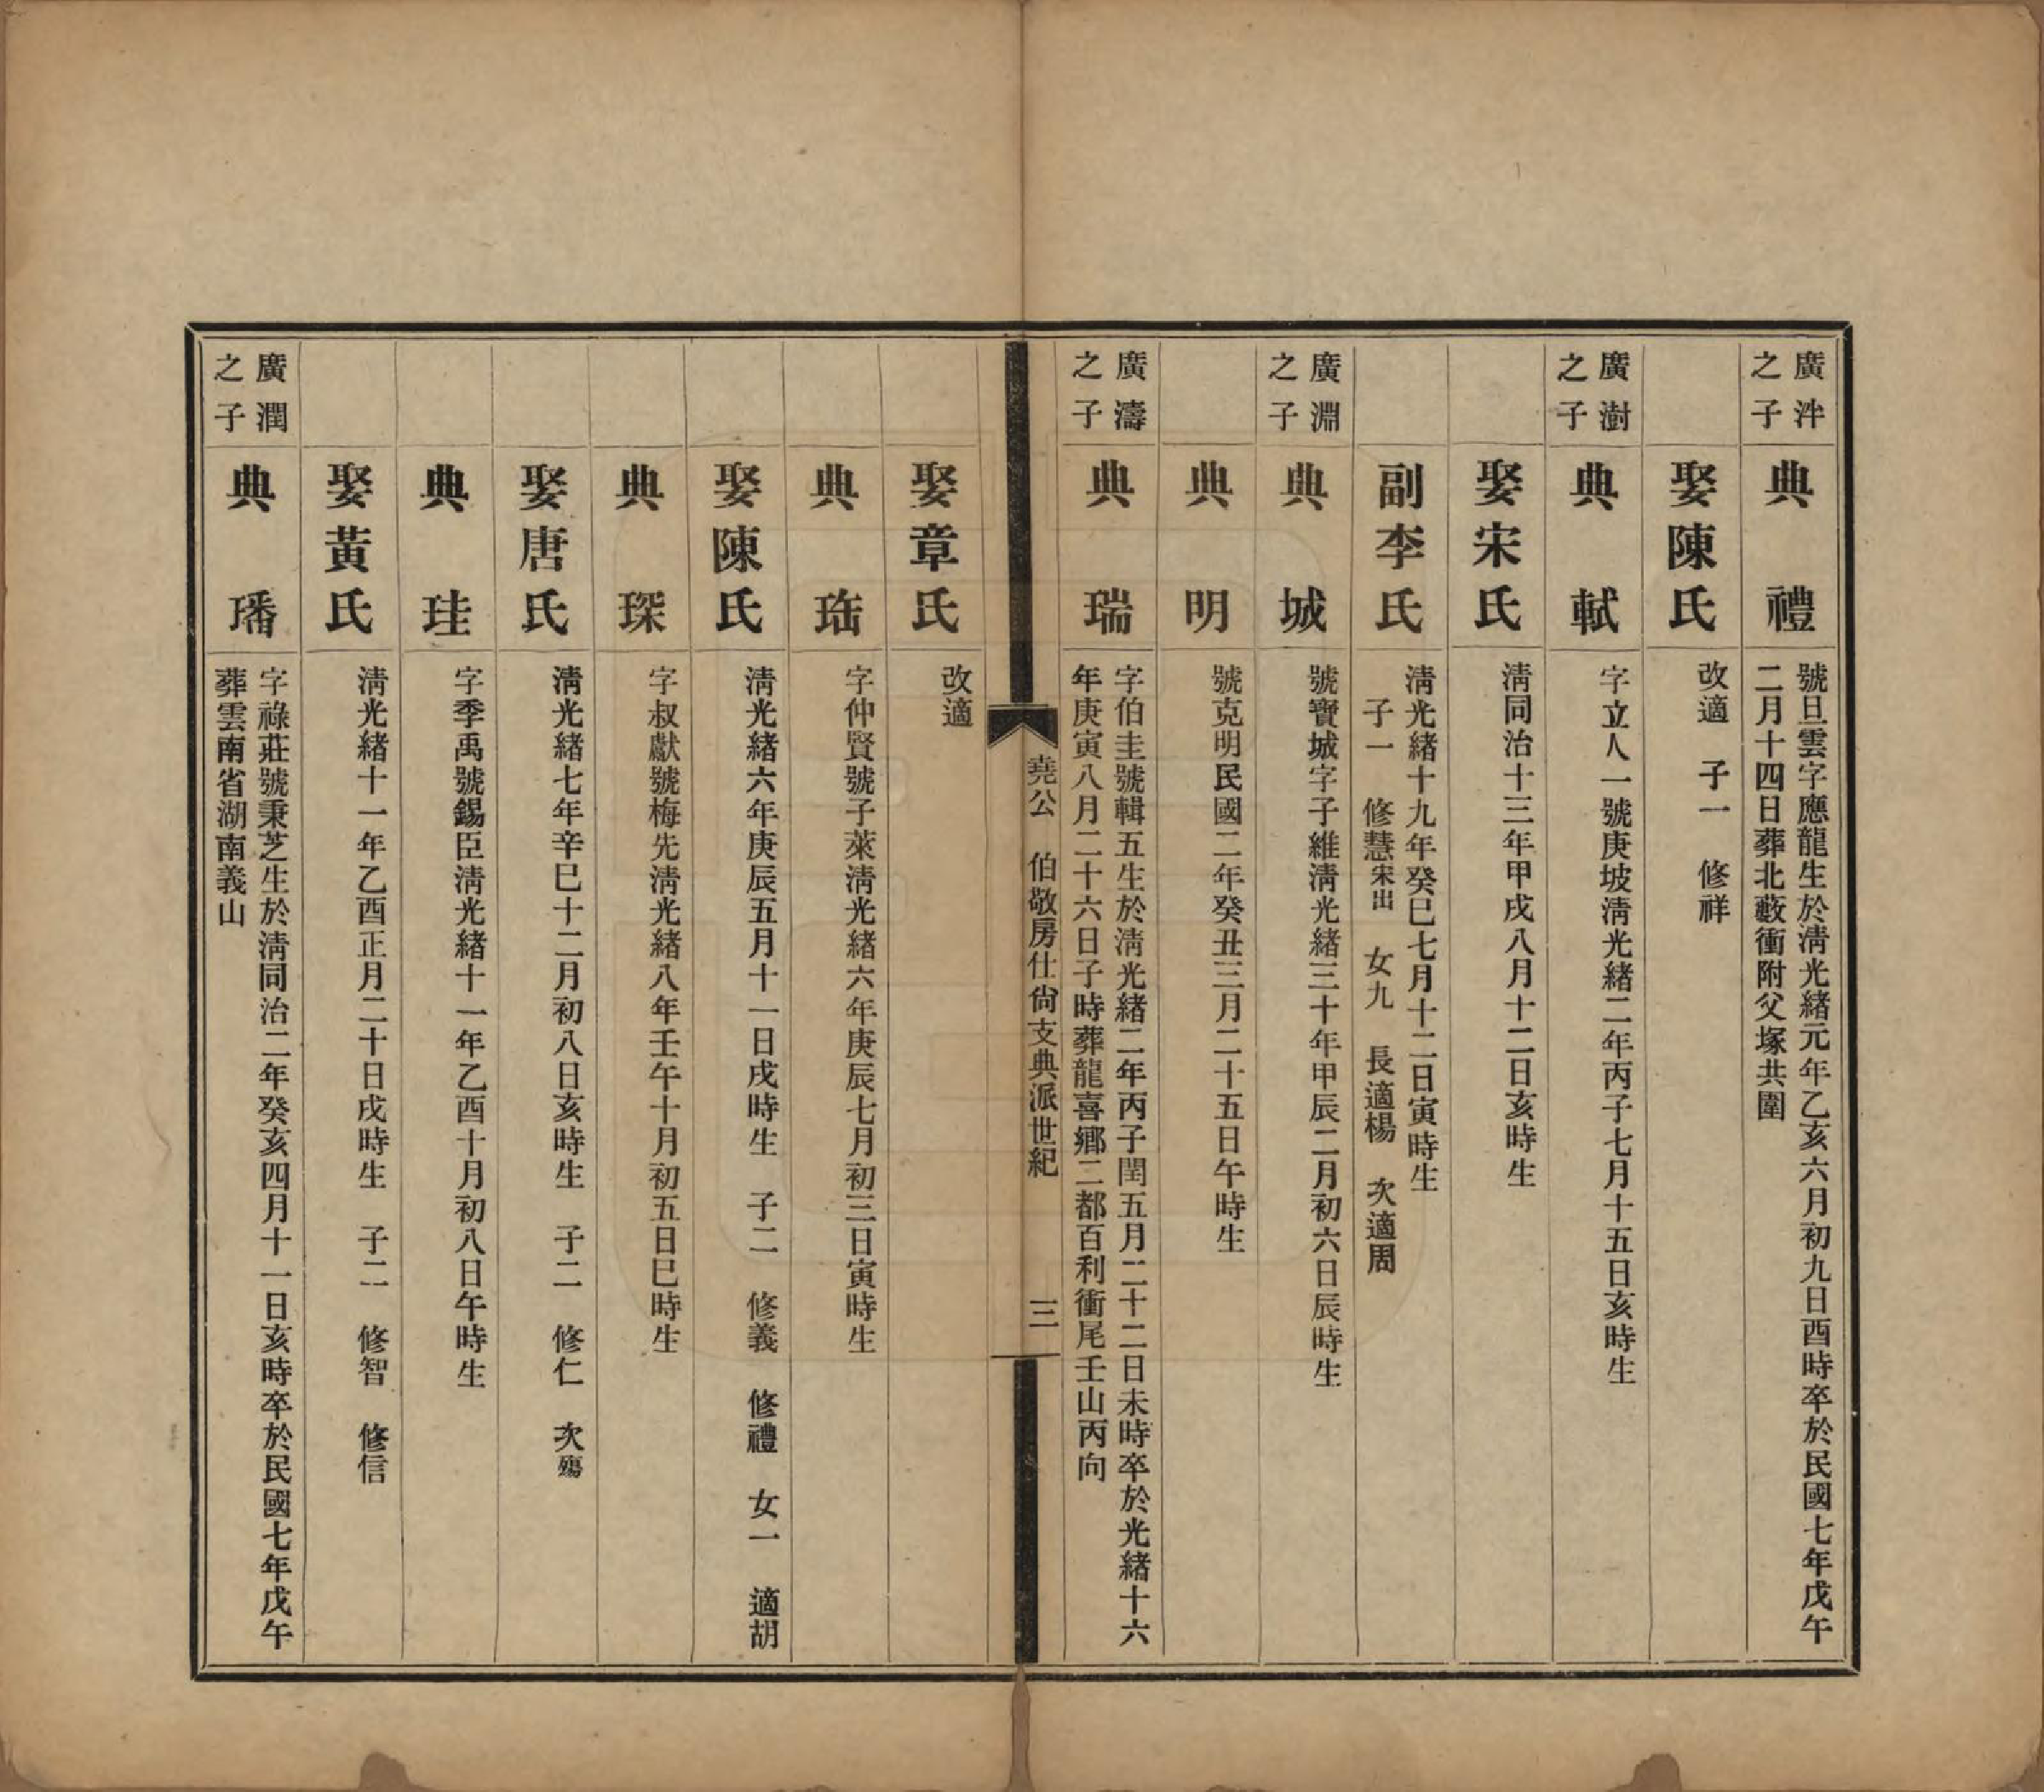 廣泮
之子
典禮
號旦雲字應龍生於淸光緒元年乙亥六月初九日酉時卒於民國七年戊午
二月十四日葬北藪衝附父塚共圍
娶陳氏
改適　子一　修祥
廣澍
之子
典軾
字立人一號庚坡淸光緒二年丙子七月十五日亥時生
娶宋氏
淸同治十三年甲戌八月十二日亥時生
副李氏
淸光緒十九年癸巳七月十二日寅時生
子一　修慧宋出　女九　長適楊　次適周
廣淵
之子
典城
號寶城字子維淸光緒三十年甲辰二月初六日辰時生
典明
號克明民國二年癸丑三月二十五日午時生
廣濤
之子
典瑞
字伯圭號輯五生於淸光緒二年丙子閏五月二十二日未時卒於光緒十六
年庚寅八月二十六日子時葬龍喜鄉二都百利衝尾壬山丙向
堯公　伯敬房仕尙支典派世紀　三
娶章氏
改適
典珤
字仲賢號子萊淸光緒六年庚辰七月初三日寅時生
娶陳氏
淸光緒六年庚辰五月十一日戌時生　子二　修義　修禮　女一　適胡
典琛
字叔獻號梅先淸光緒八年壬午十月初五日巳時生
娶唐氏
淸光緒七年辛巳十二月初八日亥時生　子二　修仁　次殤
典珪
字季禹號錫臣淸光緒十一年乙酉十月初八日午時生
娶黃氏
淸光緒十一年乙酉正月二十日戌時生　子二　修智　修信
廣潤
之子
典璠
字祿莊號秉芝生於淸同治二年癸亥四月十一日亥時卒於民國七年戊午
葬雲南省湖南義山